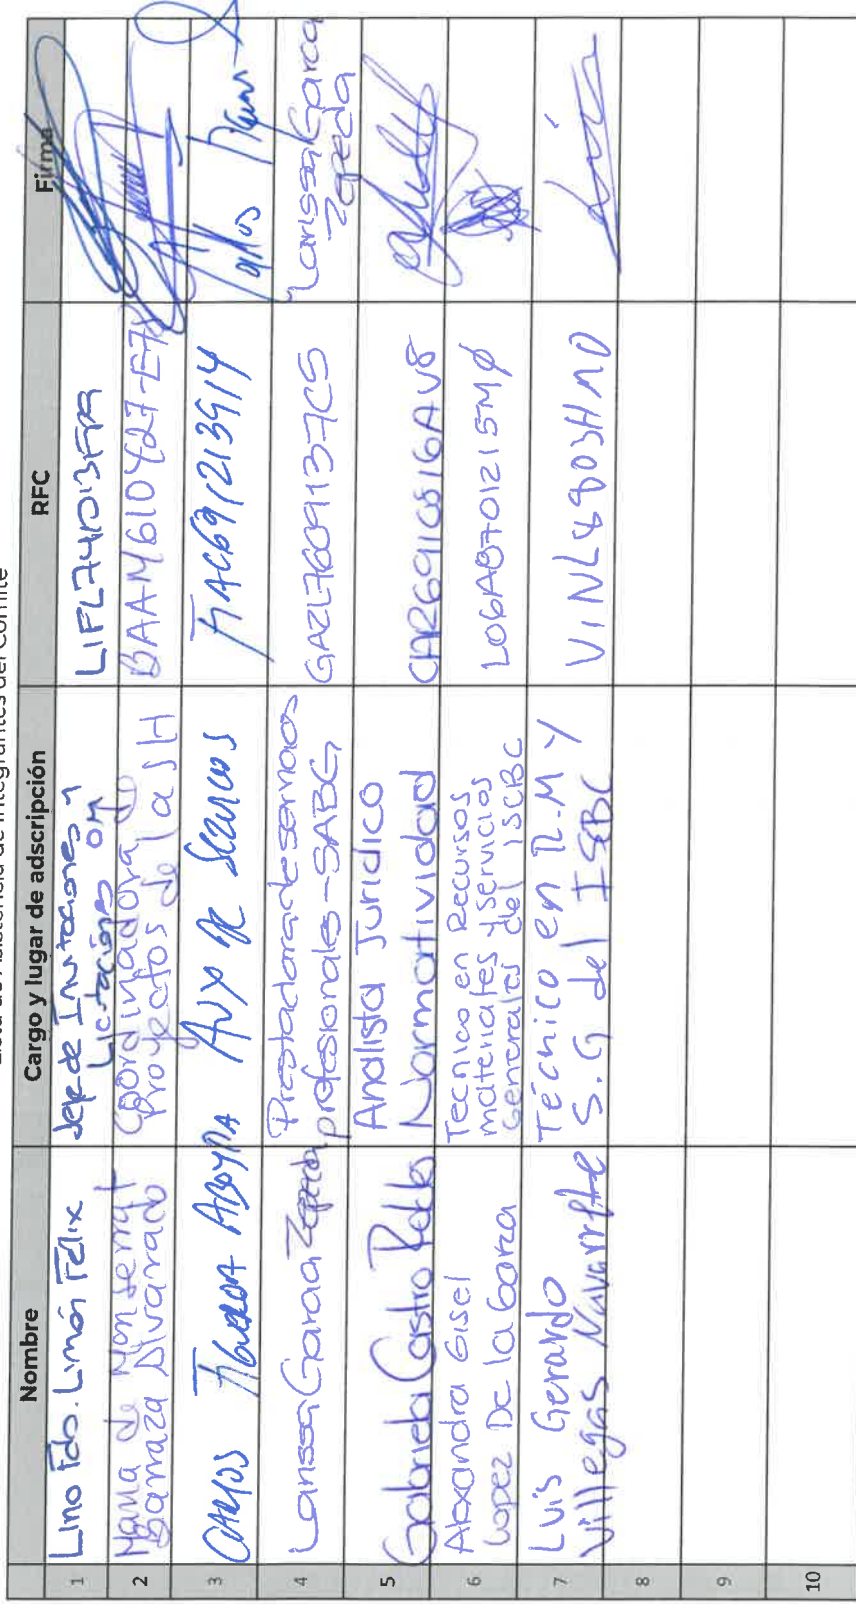 Lista de Asistencia de Integrantes del Comité
Nombre Cargo y lugar de adscripción RFC Firma
1 Lino Fdo. Limón Félix Jefe de Invitaciones y
Licitaciones OM
2 Maria de Monserrat
Barraza Alvarado
Coordinadora de
Proyectos de la SH
BAAM610427-E7
3 Carlos Figueroa Aboyna Aux de Servicios
4 Larissa Garcia Zepeda
Prestadora de servicios
profesionales - SABG
GAZL7609137C5
Larissa Garcia
Zepeda
5 Gabriela Castro Robles
Analista Jurídico
Normatividad
CARG910816AV8
6 Alexandra Gisel
Lopez De la Garza
Tecnico en Recursos
materiales y servicios
Generales del ISCBC
LOGA8701215MØ
7 Luis Gerardo
Villegas Navarrete
Técnico en R.M Y
S.G del ISBC
VINL8803HM0
8
9
10